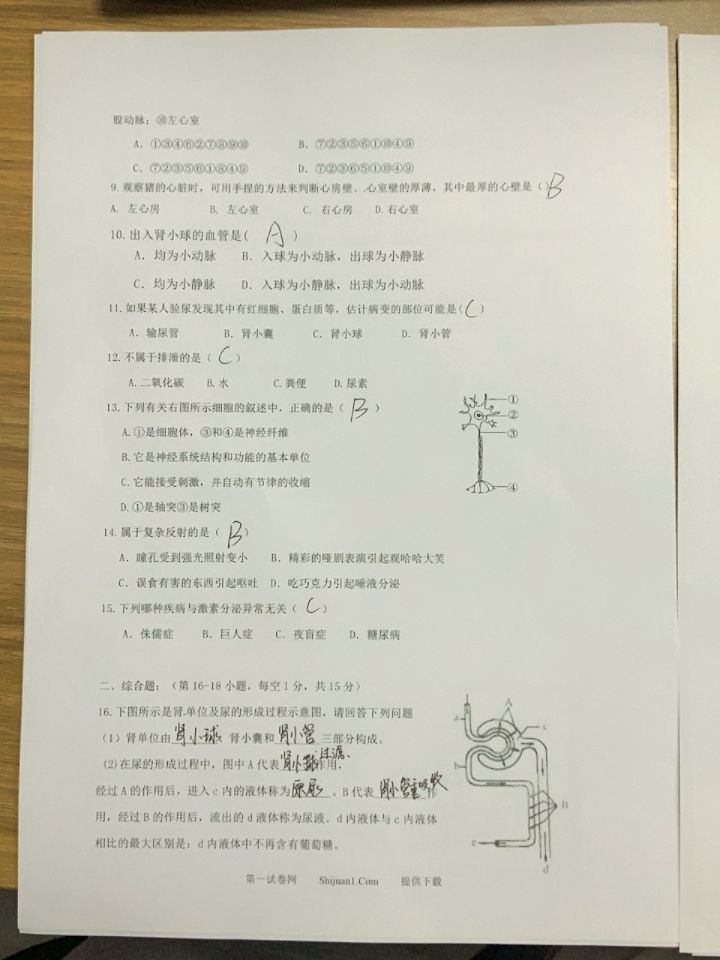 股动脉；⑩左心室
A. ①③④⑥②⑦⑧⑨⑩ B. ⑦②③⑤⑥①⑩④⑨
C. ⑦②③⑤⑥①⑧④⑨ D. ⑦②③⑥⑤①⑩④⑨
9.观察猪的心脏时，可用手捏的方法来判断心房壁、心室壁的厚薄，其中最厚的心壁是（）B
A. 左心房 B. 左心室 C. 右心房 D.右心室
10.出入肾小球的血管是( A )
A．均为小动脉 B．入球为小动脉，出球为小静脉
C．均为小静脉 D．入球为小静脉，出球为小动脉
11.如果某人验尿发现其中有红细胞、蛋白质等，估计病变的部位可能是(C)
A. 输尿管 B. 肾小囊 C. 肾小球 D. 肾小管
12.不属于排泄的是（ C ）
A.二氧化碳 B.水 C.粪便 D.尿素
13.下列有关右图所示细胞的叙述中，正确的是（ B ）
①
②
③
④
A.①是细胞体，③和④是神经纤维
B.它是神经系统结构和功能的基本单位
C.它能接受刺激，并自动有节律的收缩
D.①是轴突③是树突
14.属于复杂反射的是（ B ）
A．瞳孔受到强光照射变小 B．精彩的哑剧表演引起观哈哈大笑
C．误食有害的东西引起呕吐 D．吃巧克力引起唾液分泌
15.下列哪种疾病与激素分泌异常无关（ C ）
A．侏儒症 B．巨人症 C．夜盲症 D．糖尿病
二、综合题：（第16-18小题，每空1分，共15分）
16.下图所示是肾单位及尿的形成过程示意图，请回答下列问题
（1）肾单位由肾小球、肾小囊和肾小管三部分构成。
(2)在尿的形成过程中，图中A代表肾小球过滤作用，
经过A的作用后，进入c内的液体称为原尿。B代表肾小管重吸收作
用，经过B的作用后，流出的d液体称为尿液。d内液体与c内液体
相比的最大区别是：d内液体中不再含有葡萄糖。
A
a
c
b
B
e
d
第一试卷网 Shijuan1.Com 提供下载